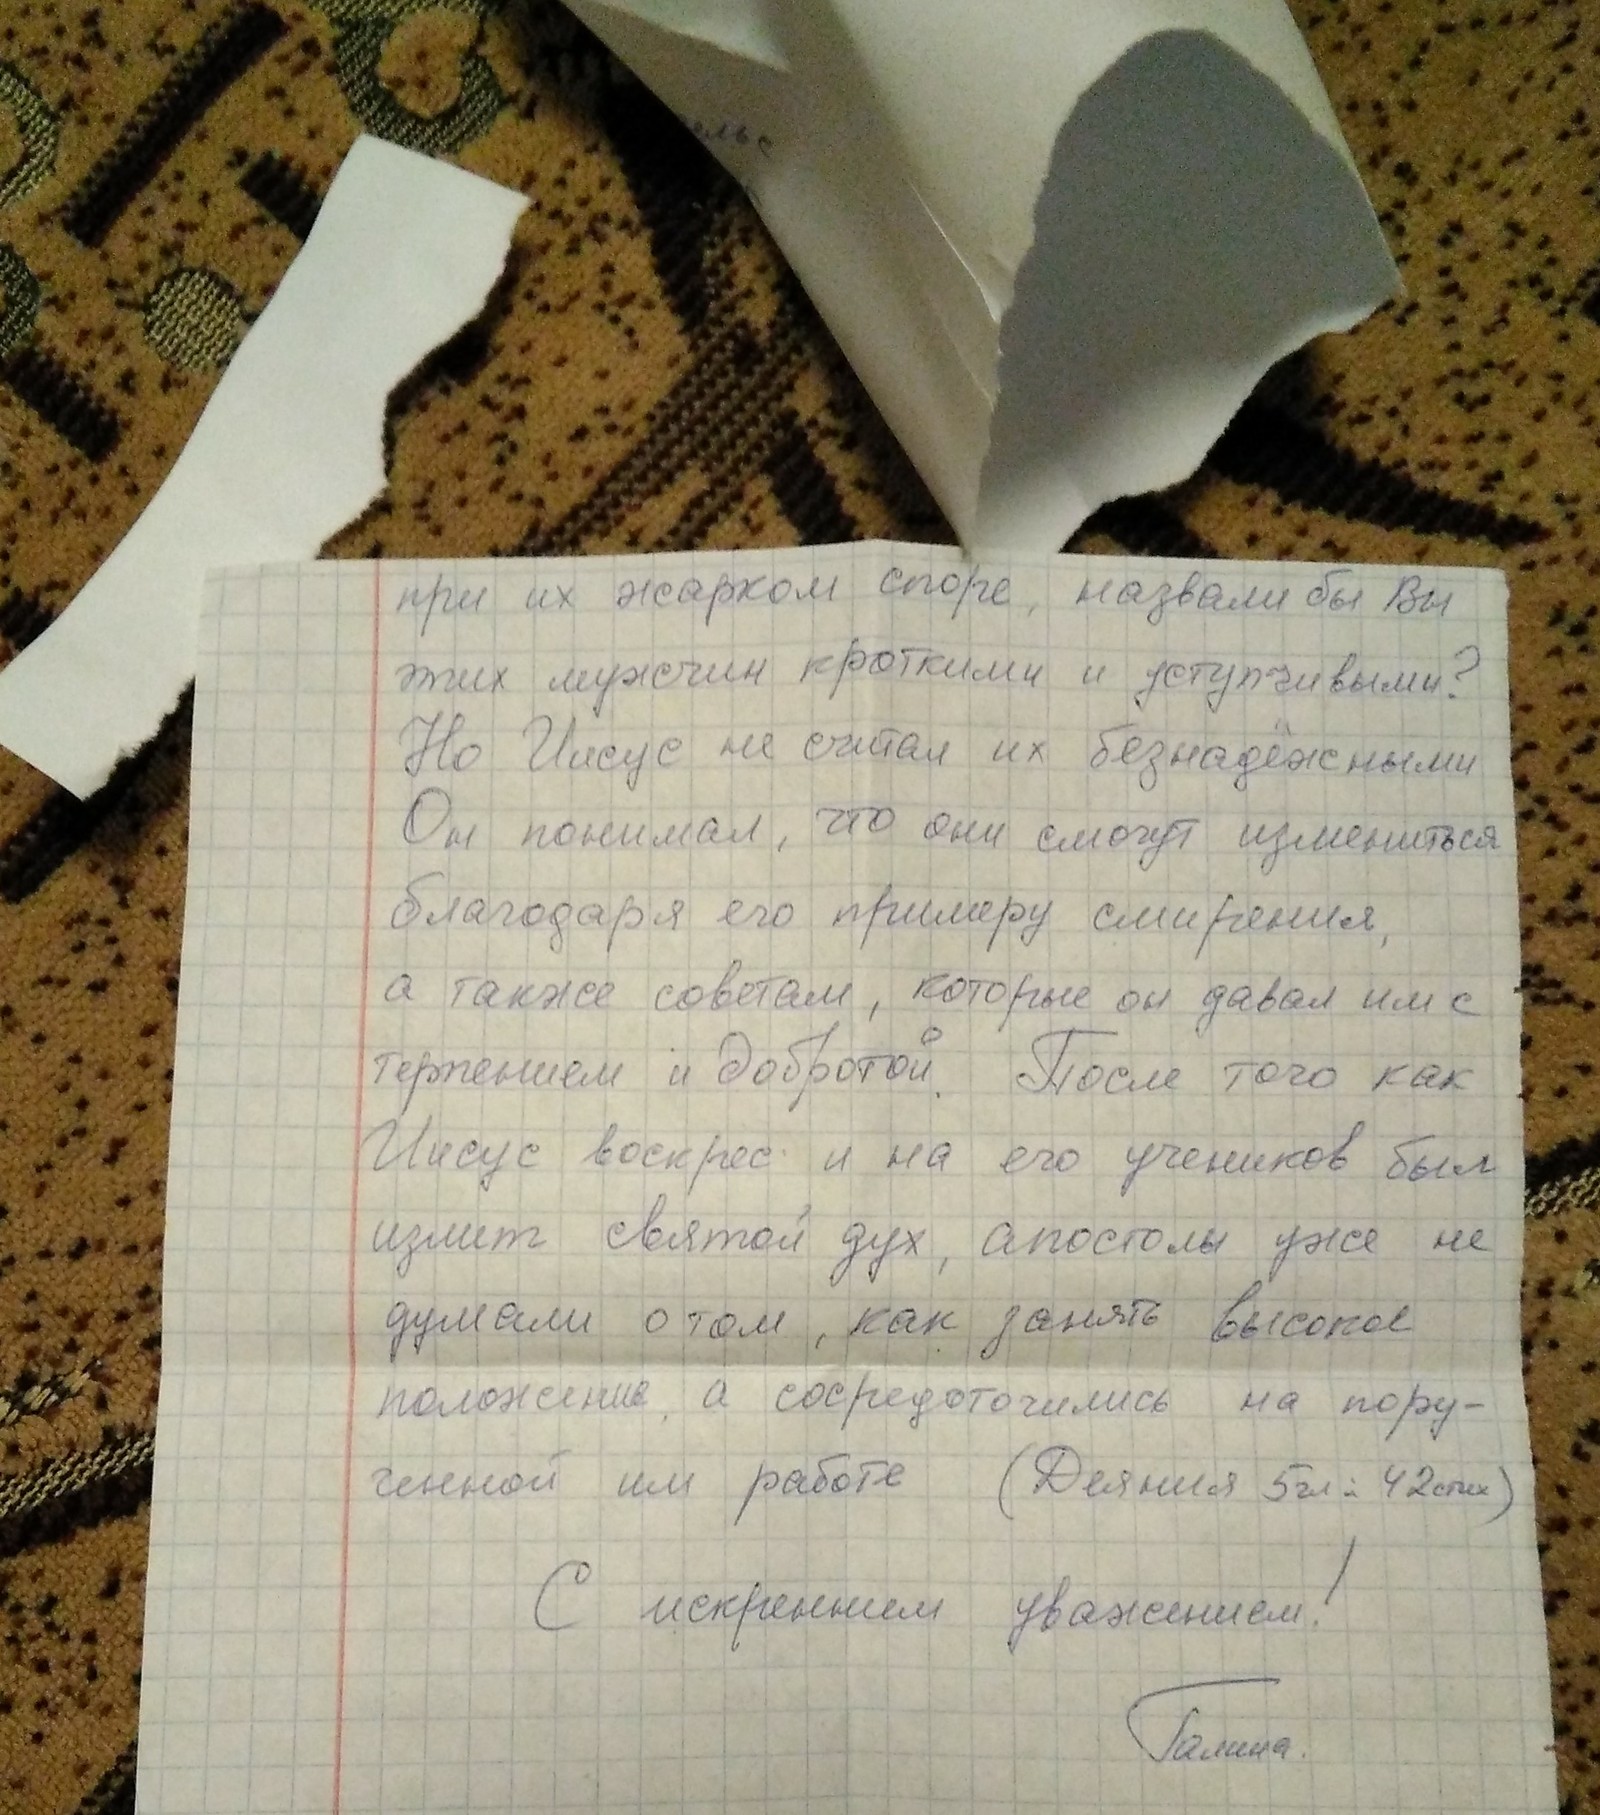 ельс
при их жарком споре, назвали бы Вы
этих мужчин кроткими и уступчивыми?
Но Иисус не считал их безнадёжными
Он понимал, что они смогут измениться
благодаря его примеру смирения,
а также советам, которые он давал им с
терпением и добротой. После того как
Иисус воскрес и на его учеников был
излит святой дух, апостолы уже не
думали о том, как занять высокое
положение, а сосредоточились на пору-
ченной им работе (Деяния 5гл: 42стих)
С искренним уважением!
Галина.